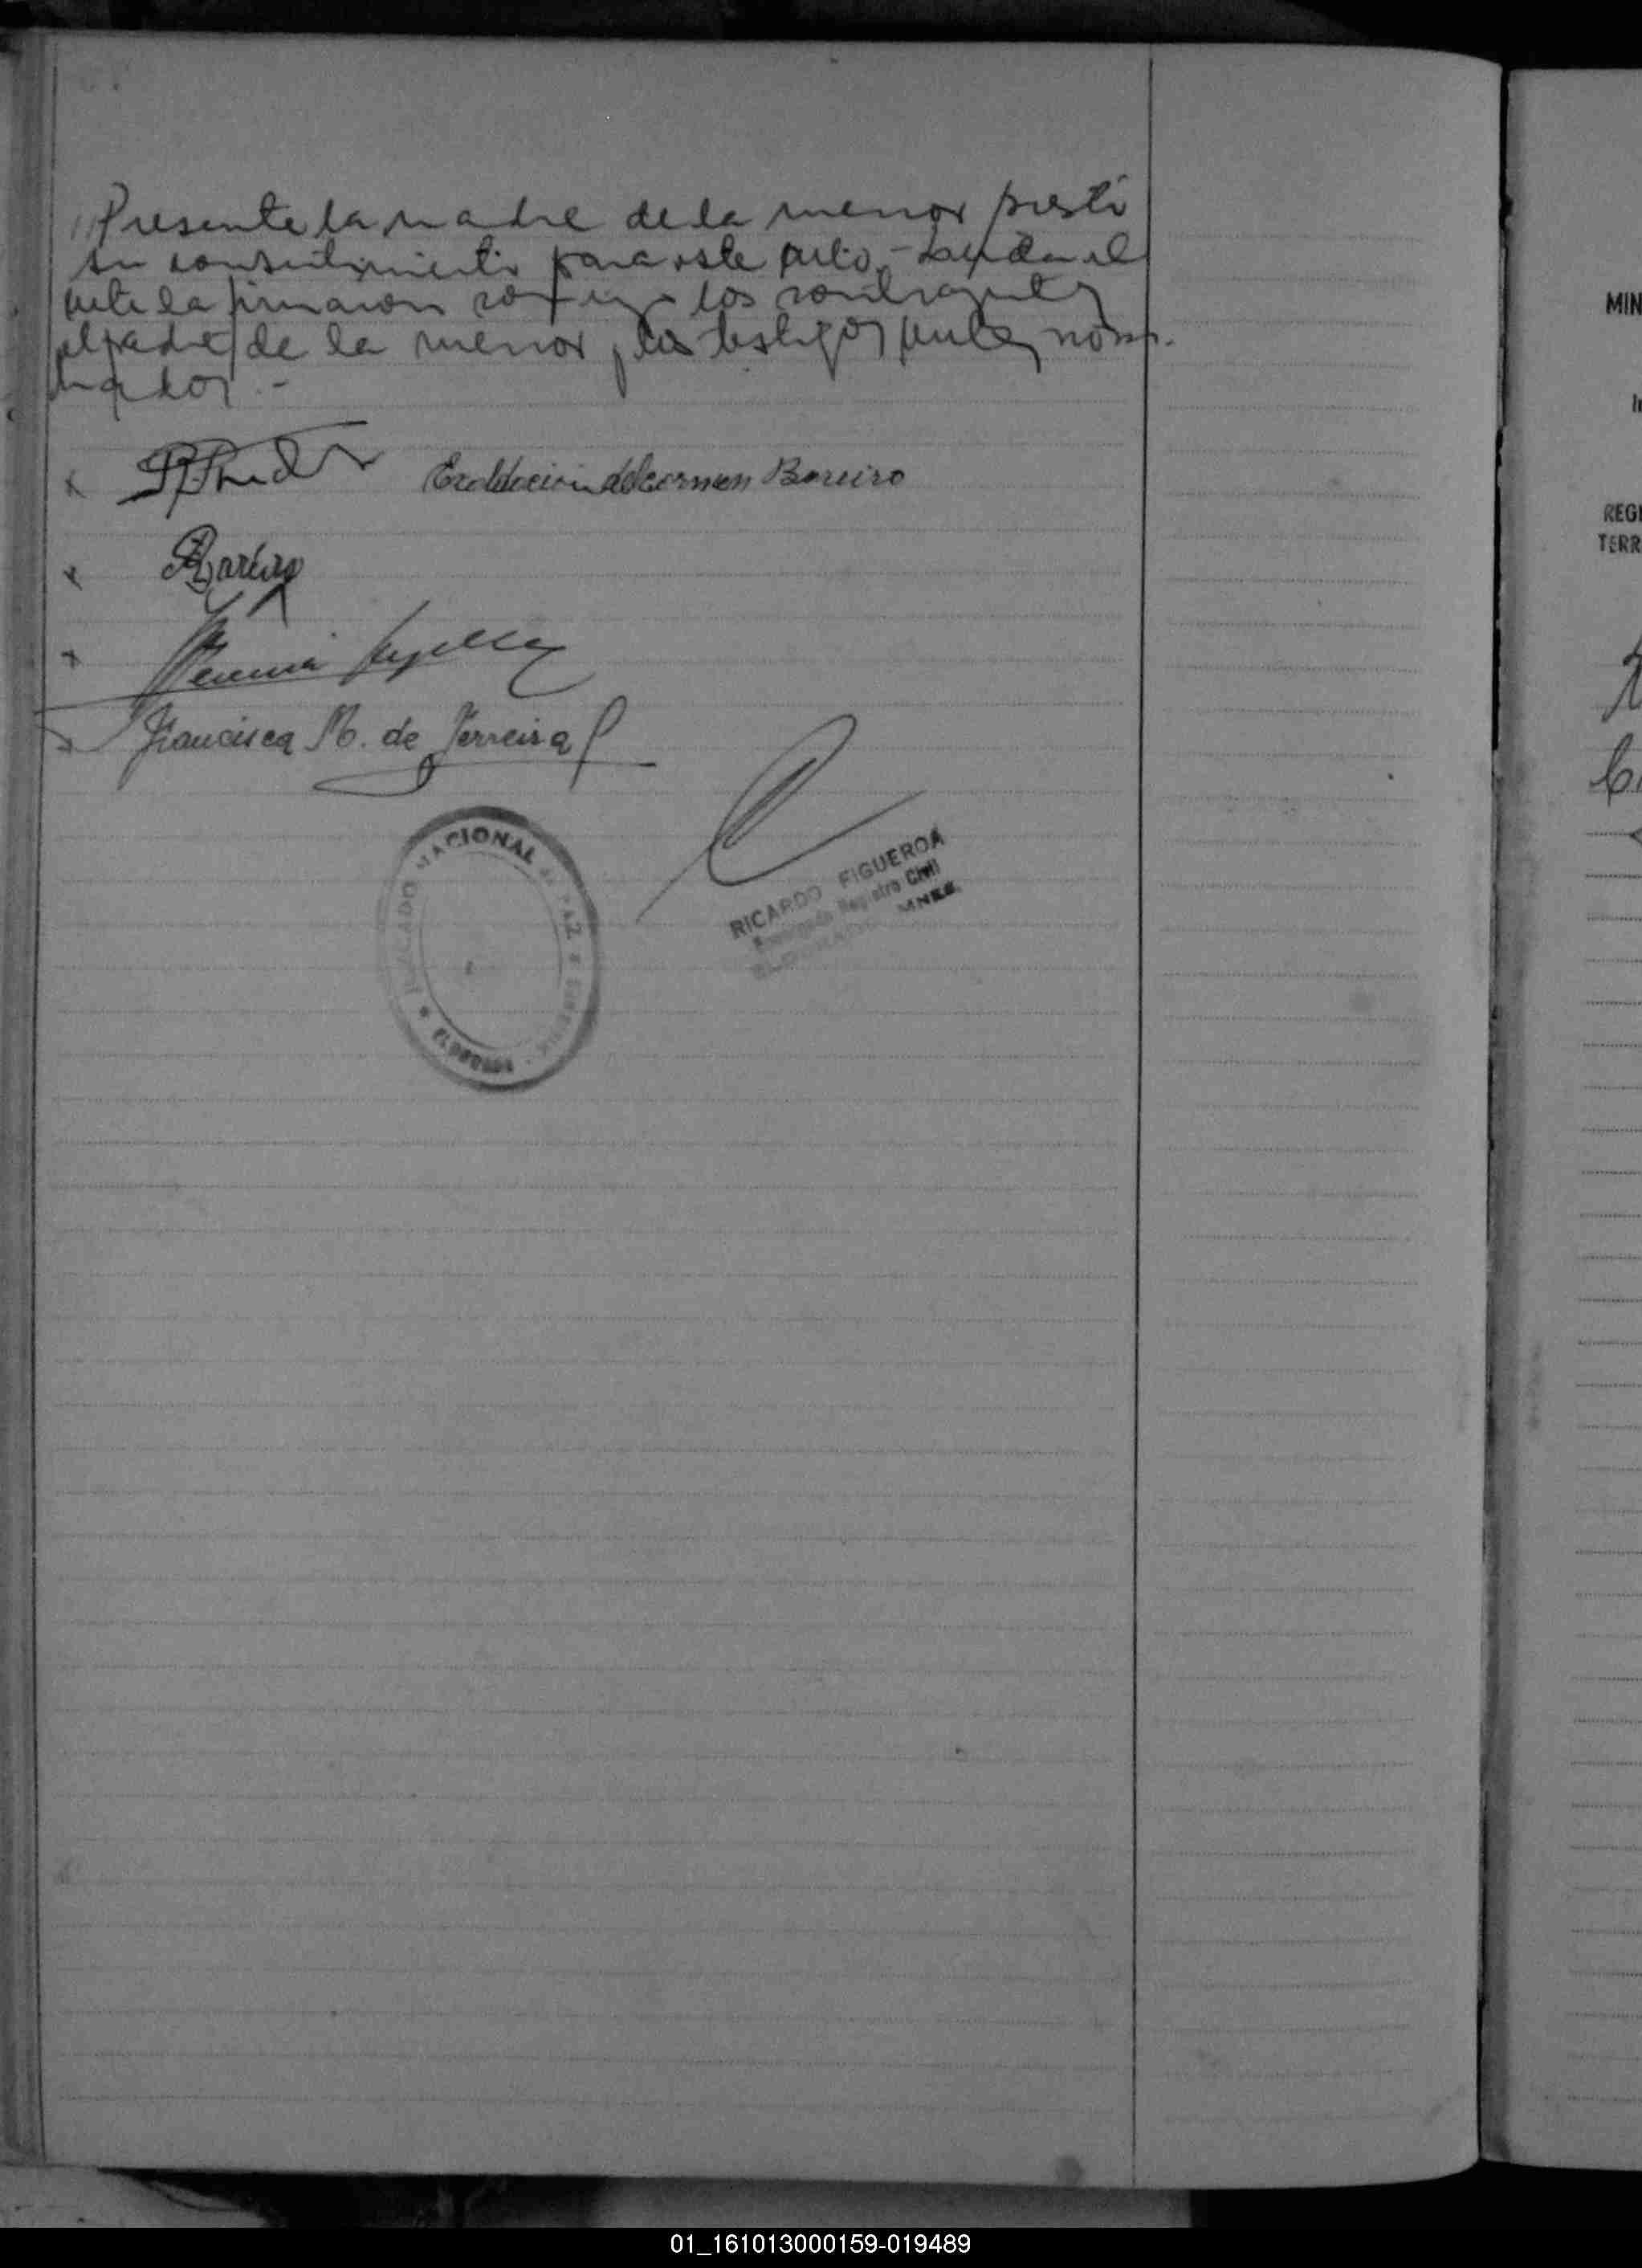 Presente la madre de la menor prestó
su consentimiento para este acto.- Leyda el
acta la firmaron conmigo los contrayentes
el padre de la menor, los testigos antes nom-
brados.-
del Carmen Bareiro
Bareiro
Francisca M. de Ferreira
JUZGADO NACIONAL de PAZ
ELDORADO
RICARDO FIGUEROA
Encargado Registro Civil
ELDORADO MNES.
MIN
REGI
TERR
01_161013000159-019489